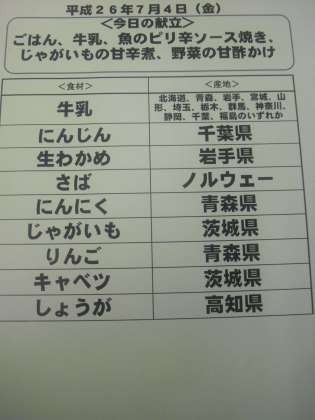 平成26年7月4日（金）
＜今日の献立＞
ごはん、牛乳、魚のピリ辛ソース焼き、
じゃがいもの甘辛煮、野菜の甘酢かけ
＜食材＞ ＜産地＞
牛乳 北海道、青森、岩手、宮城、山
形、埼玉、栃木、群馬、神奈川、
静岡、千葉、福島のいずれか
にんじん 千葉県
生わかめ 岩手県
さば ノルウェー
にんにく 青森県
じゃがいも 茨城県
りんご 青森県
キャベツ 茨城県
しょうが 高知県